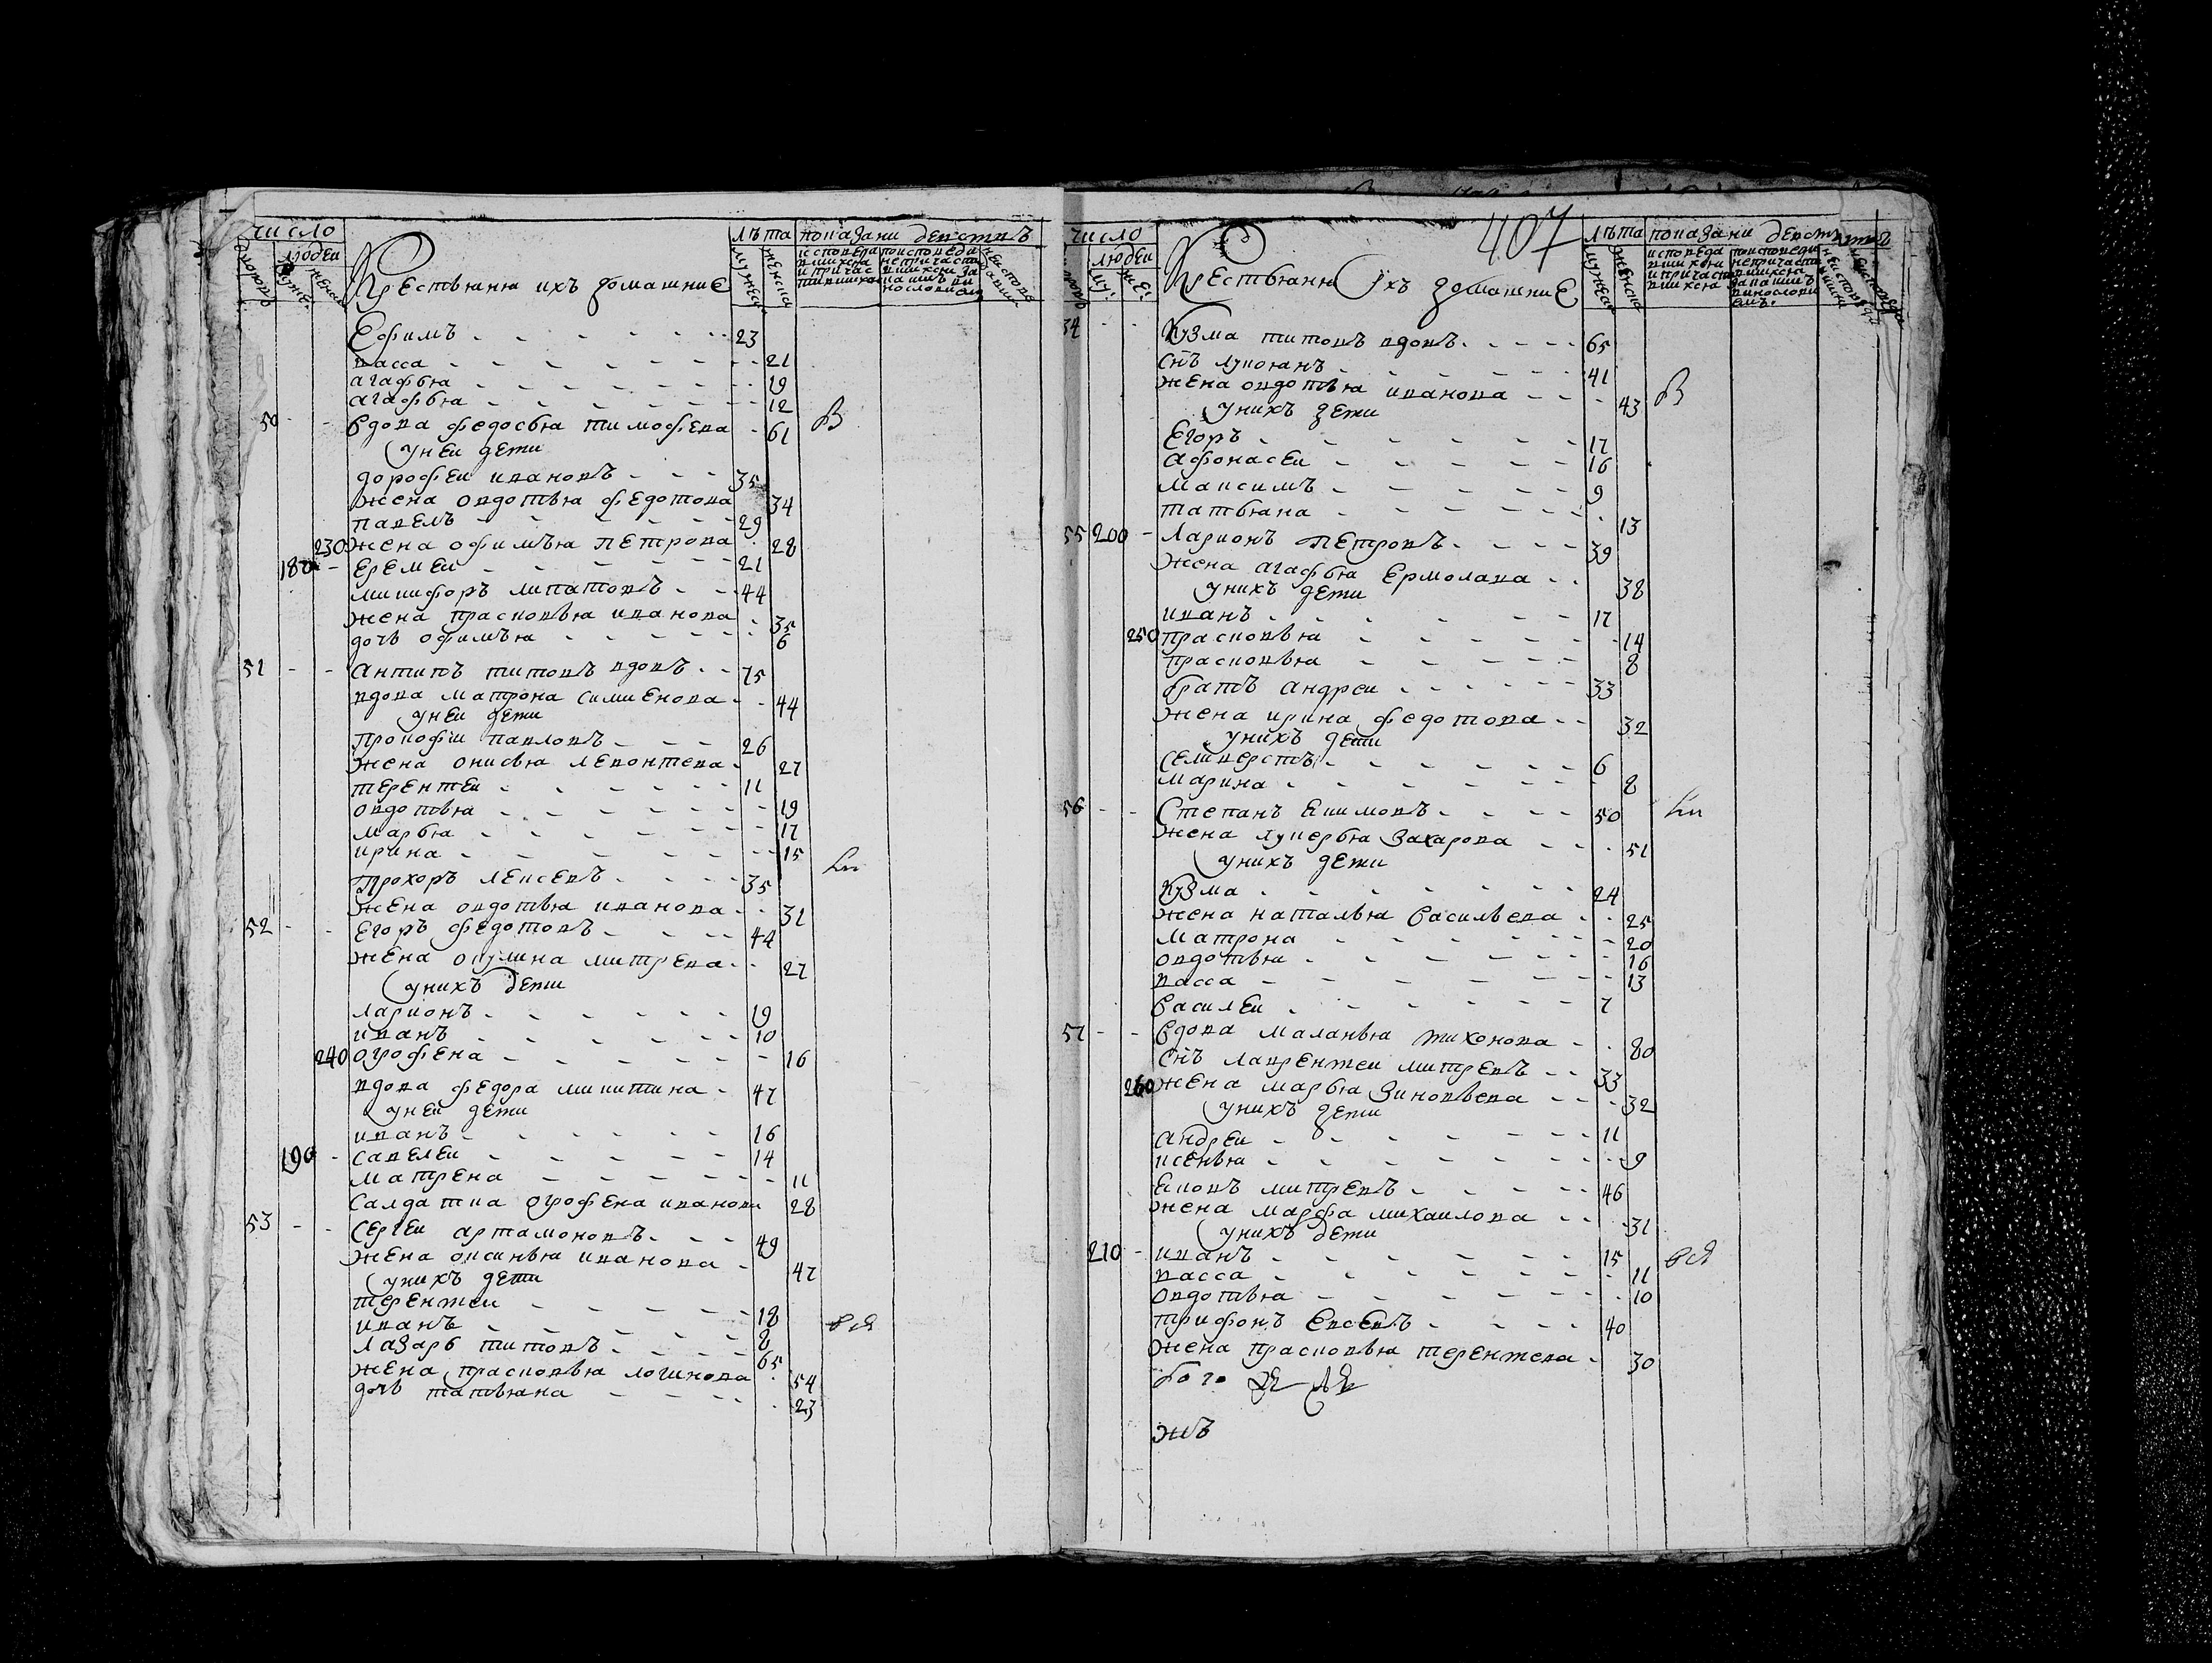 число
людеи
Крестьяня ихъ домашние
лѣта
показани действъ
Ефимъ 23
васса 21
агафья 19
агафья 12
50 вдова федосья тимофева 61
у неи дети
дорофеи ивановъ 35
жена овдотья федотова 34
павелъ 29
230 жена офимья петрова 28
180 еремеи 21
никифоръ липатовъ 44
жена прасковья иванова 35
дочь офимья 6
51 антипъ титовъ вдовъ 75
вдова матрона симиенова 44
у неи дети
прокофии павловъ 26
жена онисья левонтева 27
терентеи 11
овдотья 19
марья 17
ирина 15
Прохоръ 35
жена овдотья иванова 31
52 Егоръ федотовъ 44
жена окулина митрева 27
у нихъ дети
ларионъ 19
иванъ 10
240 огрофена 16
вдова федора микитина 47
у неи дети
иванъ 16
190 савелеи 14
матрена 11
салдатка огрофена иванова 28
53 сергеи артамоновъ 49
жена оксинья иванова 47
у нихъ дети
терентеи 18
иванъ 8
лазарь титовъ 65
жена прасковья логинова 54
дочь татьяна 23
407
число
людеи
Крестьяня ихъ домашние
лѣта
показани действъ
54 Кузма титовъ вдовъ 65
снъ лукоянъ 41
жена овдотья иванова 43
у нихъ дети
Егоръ 17
афонасеи 16
максимъ 9
татьяна 13
55 200 ларионъ петровъ 39
жена агафья ермолава 38
у нихъ дети
иванъ 17
250 прасковья 14
прасковья 8
братъ андреи 33
жена ирина федотова 32
у нихъ дети
селиверстъ 6
марина 8
56 Степанъ екимовъ 50
жена лукерья захарова 51
у нихъ дети
Кузма 24
жена наталья васильева 25
матрона 20
овдотья 16
васса 13
василеи 7
57 вдова маланья тихонова 80
снъ лаврентеи митревъ 33
260 жена марья зиновьева 32
у нихъ дети
андреи 11
ксенья 9
митревъ 46
жена марфа михаилова 31
у нихъ дети
210 иванъ 15
васса 11
овдотья 10
трифонъ евсевъ 40
жена прасковья терентева 30